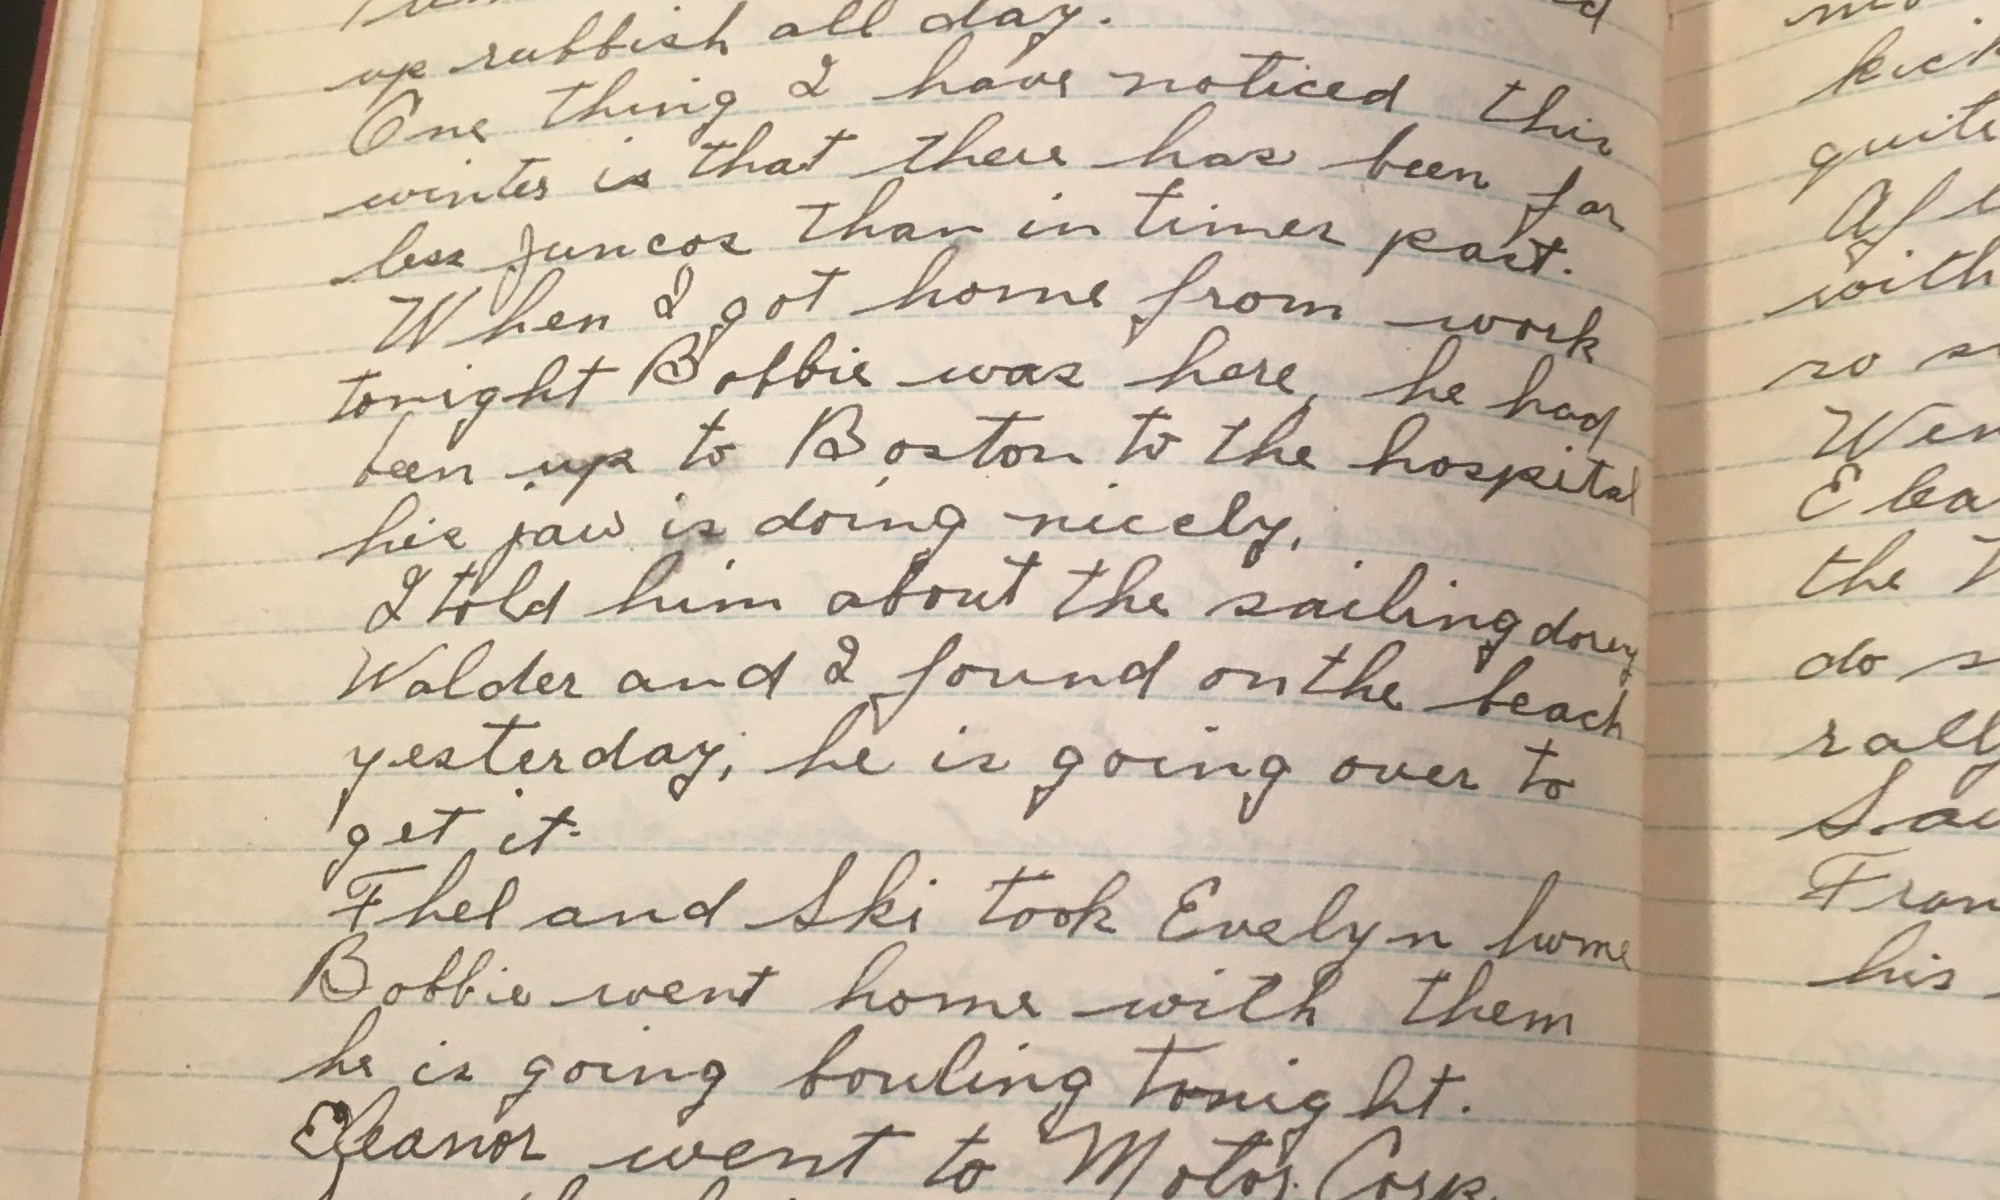 up rubbish all day.
One thing I have noticed this
winter is that there has been far
less juncos than in times past.
When I got home from work
tonight Bobbie was here, he had
been up to Boston to the hospital
his jaw is doing nicely,
I told him about the sailing dorey
Walder and I found on the beach
yesterday, he is going over to
get it.
Thel and Ski took Evelyn home
Bobbie went home with them
he is going bowling tonight.
Eleanor went to Motor Corp.
kick
quite
with
so
the
do
rally
his